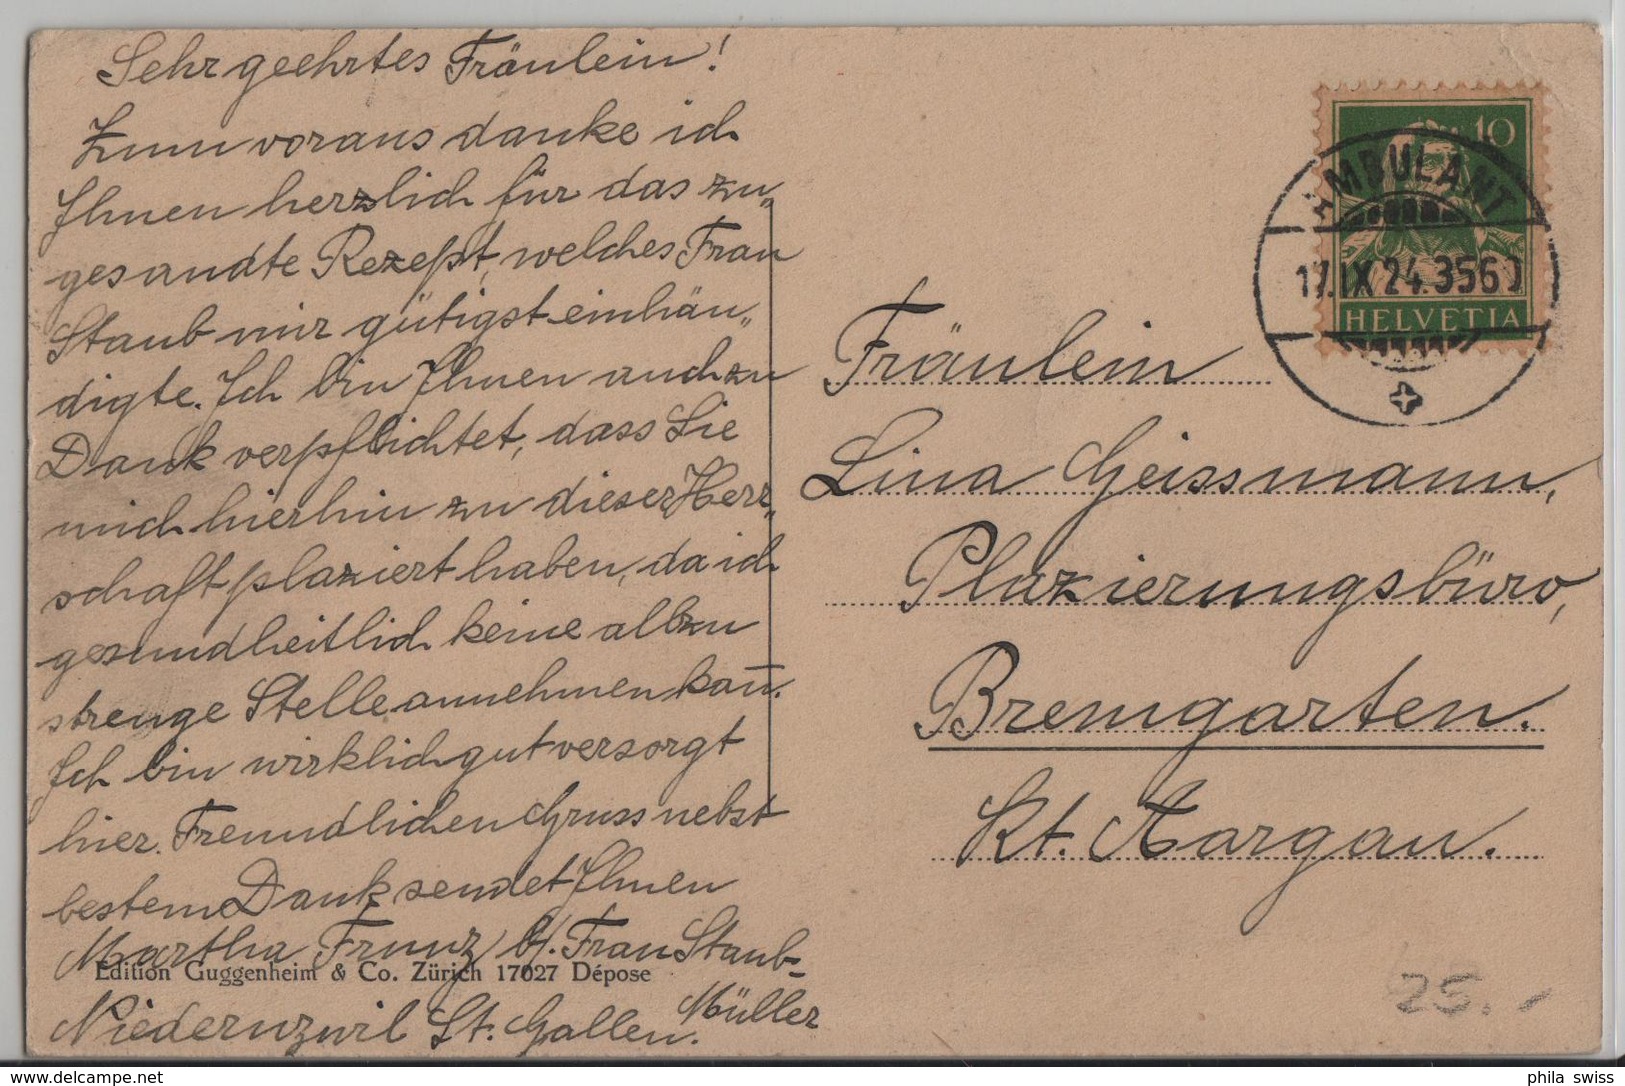 Sehr geehrtes Fräulein!
Zum voraus danke ich
Ihnen herzlich für das zu„
gesandte Rezept, welches Frau
Staub mir gütigst einhän„
digte. Ich bin Ihnen auch zu
Dank verpflichtet, dass Sie
mich hierhin zu dieser Herr„
schaft plaziert haben, da ich
gesundheitlich keine allzu
strenge Stelle annehmen kan̅.
Ich bin wirklich gut versorgt
hier. Freundlichen Gruss nebst
bestem Dank sendet Ihnen
Martha Frunz b/. Frau Staub-
Müller
Niedernzwil St. Gallen.
Edition Guggenheim & Co. Zürich 17027 Dépose
10
HELVETIA
AMBULANT
17.IX 24. 3560
Fräulein
Lina Geissmann,
Plazierungsbüro,
Bremgarten.
Kt. Aargau.
25.-
phila swiss